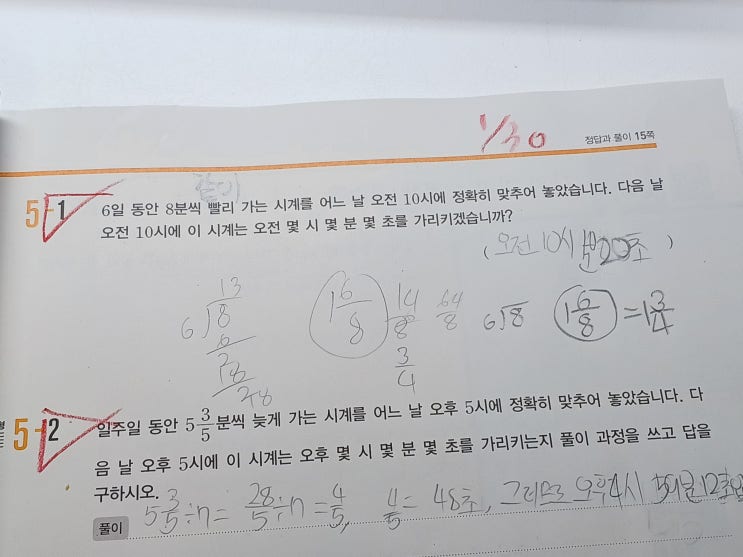 1/30
정답과 풀이 15쪽
5-1
6일 동안 8분씩 빨리 가는 시계를 어느 날 오전 10시에 정확히 맞추어 놓았습니다. 다음 날
오전 10시에 이 시계는 오전 몇 시 몇 분 몇 초를 가리키겠습니까?
( 오전 10시 분 20초 )
13
6 8
6
1 6/8
14/8
3/4
64/8
6 8
1 6/8 = 1 3/4
5-2
일주일 동안 5 3/5분씩 늦게 가는 시계를 어느 날 오후 5시에 정확히 맞추어 놓았습니다. 다
음 날 오후 5시에 이 시계는 오후 몇 시 몇 분 몇 초를 가리키는지 풀이 과정을 쓰고 답을
구하시오.
풀이
5 3/5÷7= 28/5÷7=4/5, 4/5= 48초, 그러므로 오후4시 59분 12초